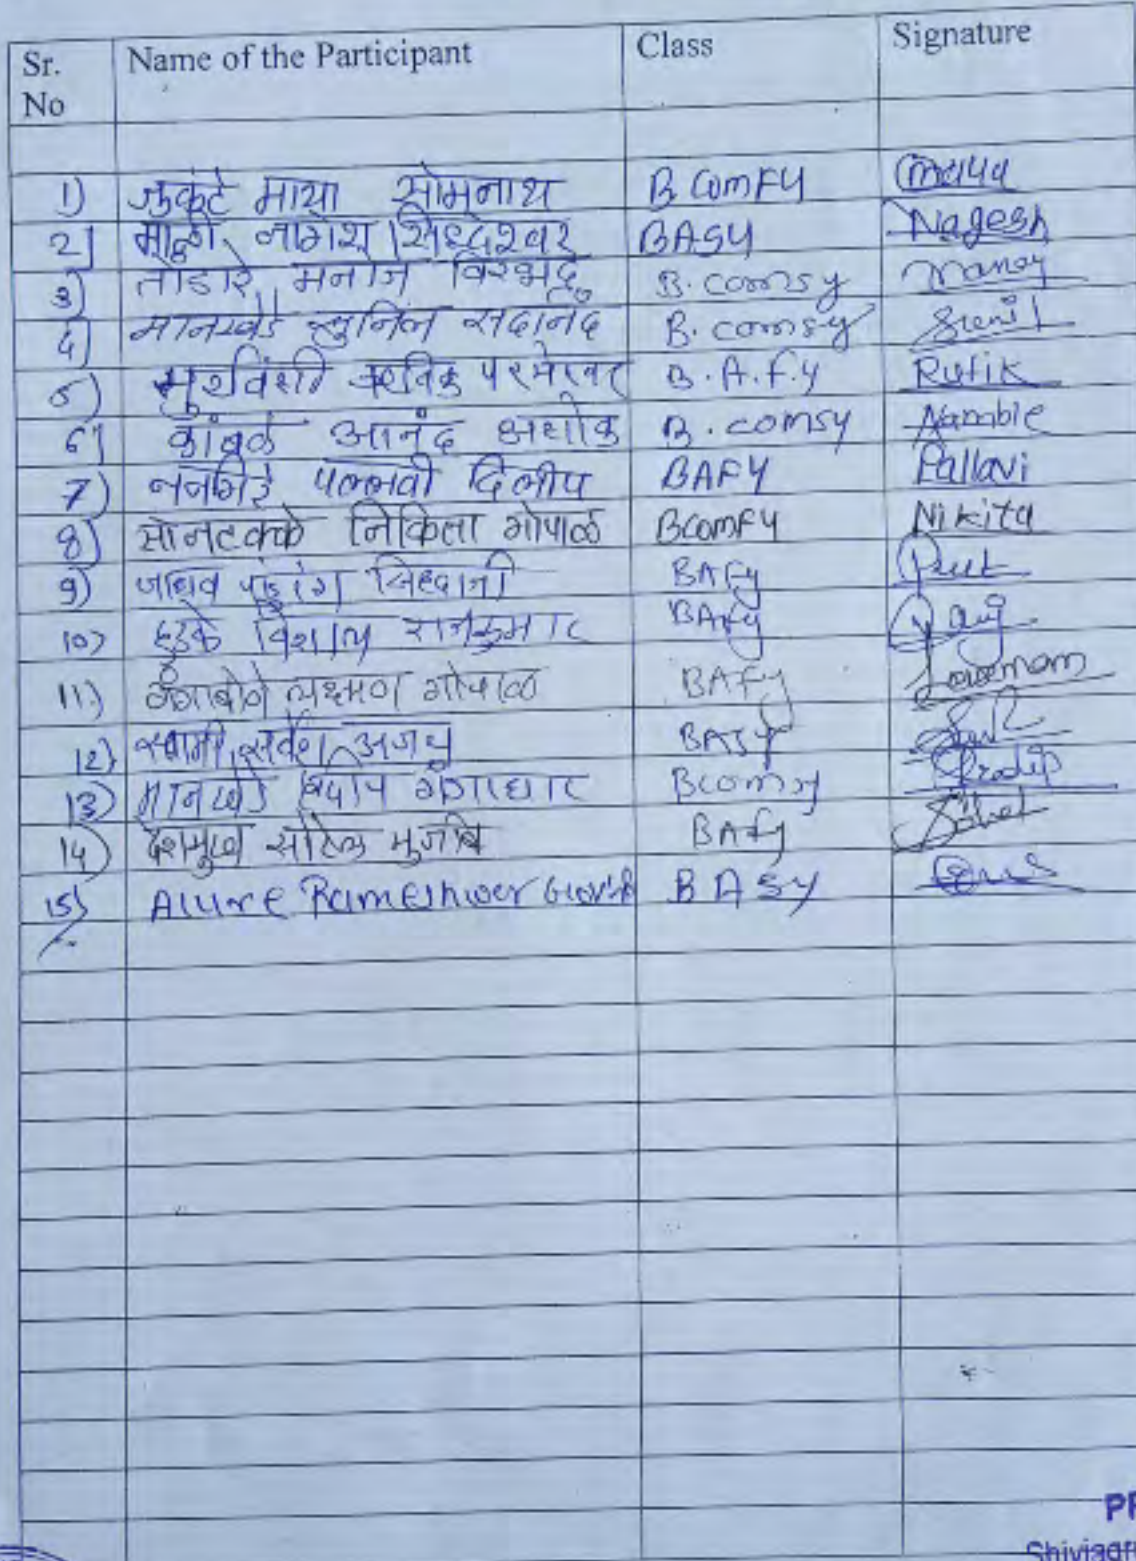 Sr. No Name of the Participant Class Signature
1) जुकुंटे माया सोमनाथ B ComFy Maya
2) माळी नागेश सिध्देश्वर BASY Nagesh
3) तोडारे मनोज विरभद्र B.comsy Manoj
4) मानखेडे सुनिल सदानंद B.comsy Sunil
5) सुर्यवंशी ऋतिक परमेश्वर B.A.F.y Rutik
6) कांबळे आनंद अशोक B.comsy
7) ननगिरे पल्लवी दिलीप BAFY Pallavi
8) सोनटक्के निकिता गोपाळ BcomFy Nikita
9) जाधव पांडुरंग BAFy
10) हुडके विशाल राजकुमार BAFy
11) गंगाबोने लक्ष्मण गोपाळ BAFy
12) स्वामी सर्वेश अजय BASY
13) मानखेडे प्रदीप गंगाधार Bcomsy Pradip
14) देशमुख सोहेल मुजीब BAfy Sohel
15) Allure Rameshwar BASY
PR